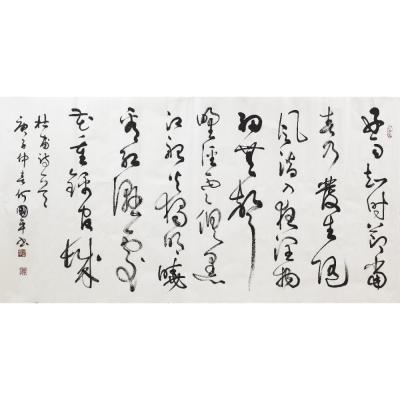 好雨知時節當
春乃發生隨
風潛入夜潤物
細無聲
野徑雲俱黑
江船火獨明曉
看紅濕處
花重錦官城
杜甫詩一首
庚子仲春何國平書